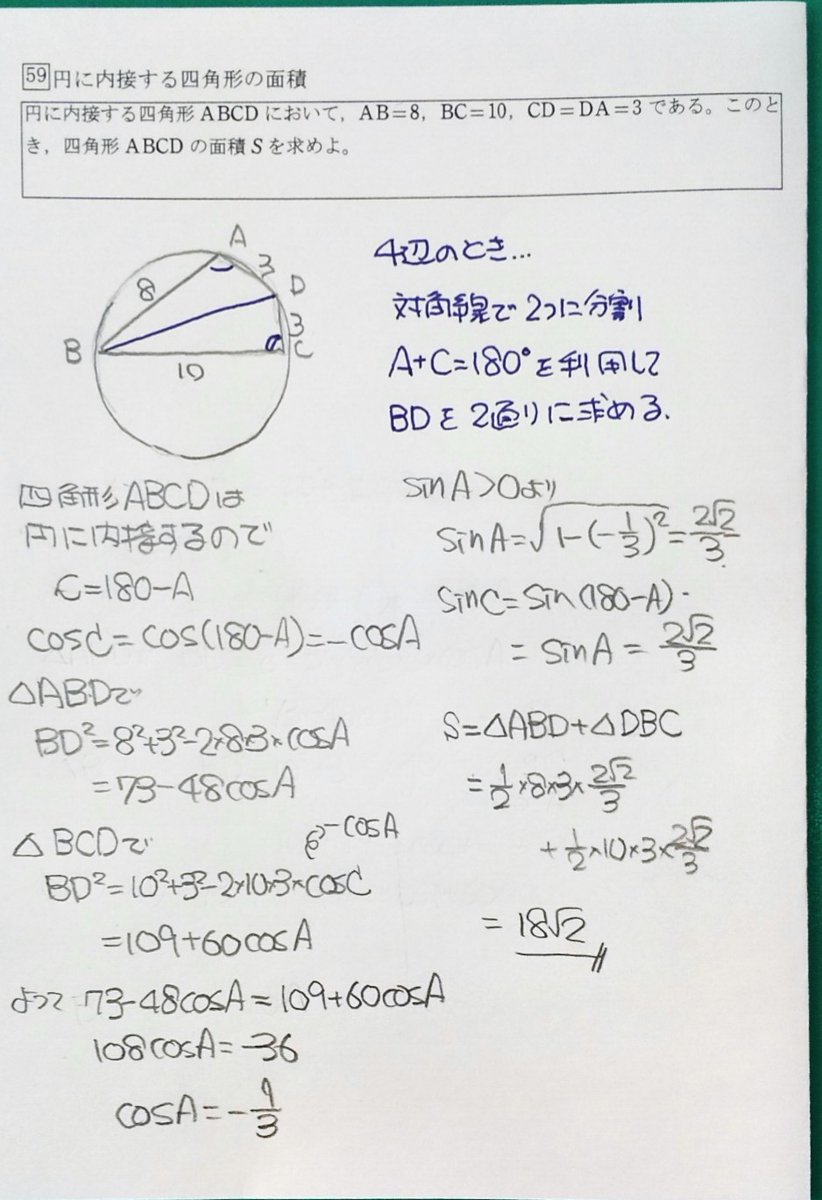 59 円に内接する四角形の面積
円に内接する四角形 ABCD において，AB=8，BC=10，CD=DA=3 である。このと
き，四角形 ABCD の面積 S を求めよ。
A
8
3
D
3
B
C
10
4辺のとき…
対角線で2つに分割
A+C=180°を利用して
BDを2通りに求める.
四角形ABCDは
円に内接するので
C=180-A
cosC=cos(180-A)=-cosA
△ABDで
BD²=8²+3²-2×8×3×cosA
=73-48cosA
△BCDで
-cosA
BD²=10²+3²-2×10×3×cosC
=109+60cosA
よって 73-48cosA=109+60cosA
108cosA=-36
cosA=-1/3
sinA>0より
sinA=√(1-(-1/3)²)=2√2/3
sinC=sin(180-A)
=sinA=2√2/3
S=△ABD+△DBC
=1/2×8×3×2√2/3
+1/2×10×3×2√2/3
=18√2